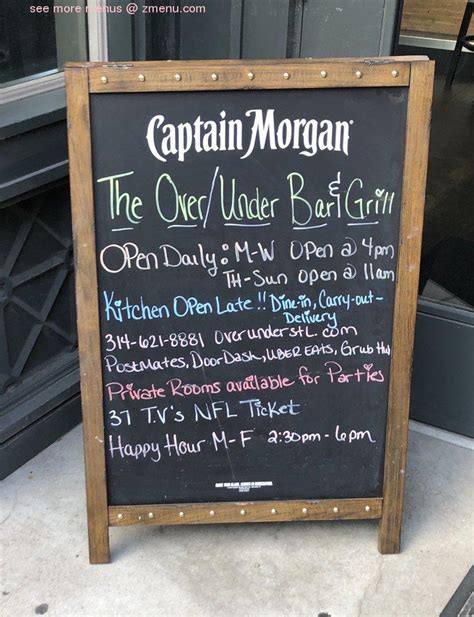 see more menus @ zmenu.com
Captain Morgan
The Over/Under Bar & Grill
Open Daily: M-W Open @ 4pm
TH-Sun Open @ 11am
Kitchen Open Late!! Dine-in, Carry-out-
Delivery
314-621-8881 overunderstl.com
Postmates, DoorDash, UBER EATS, GrubHub
Private Rooms available for Parties
37 T.V.'s NFL Ticket
Happy Hour M-F 2:30pm - 6pm